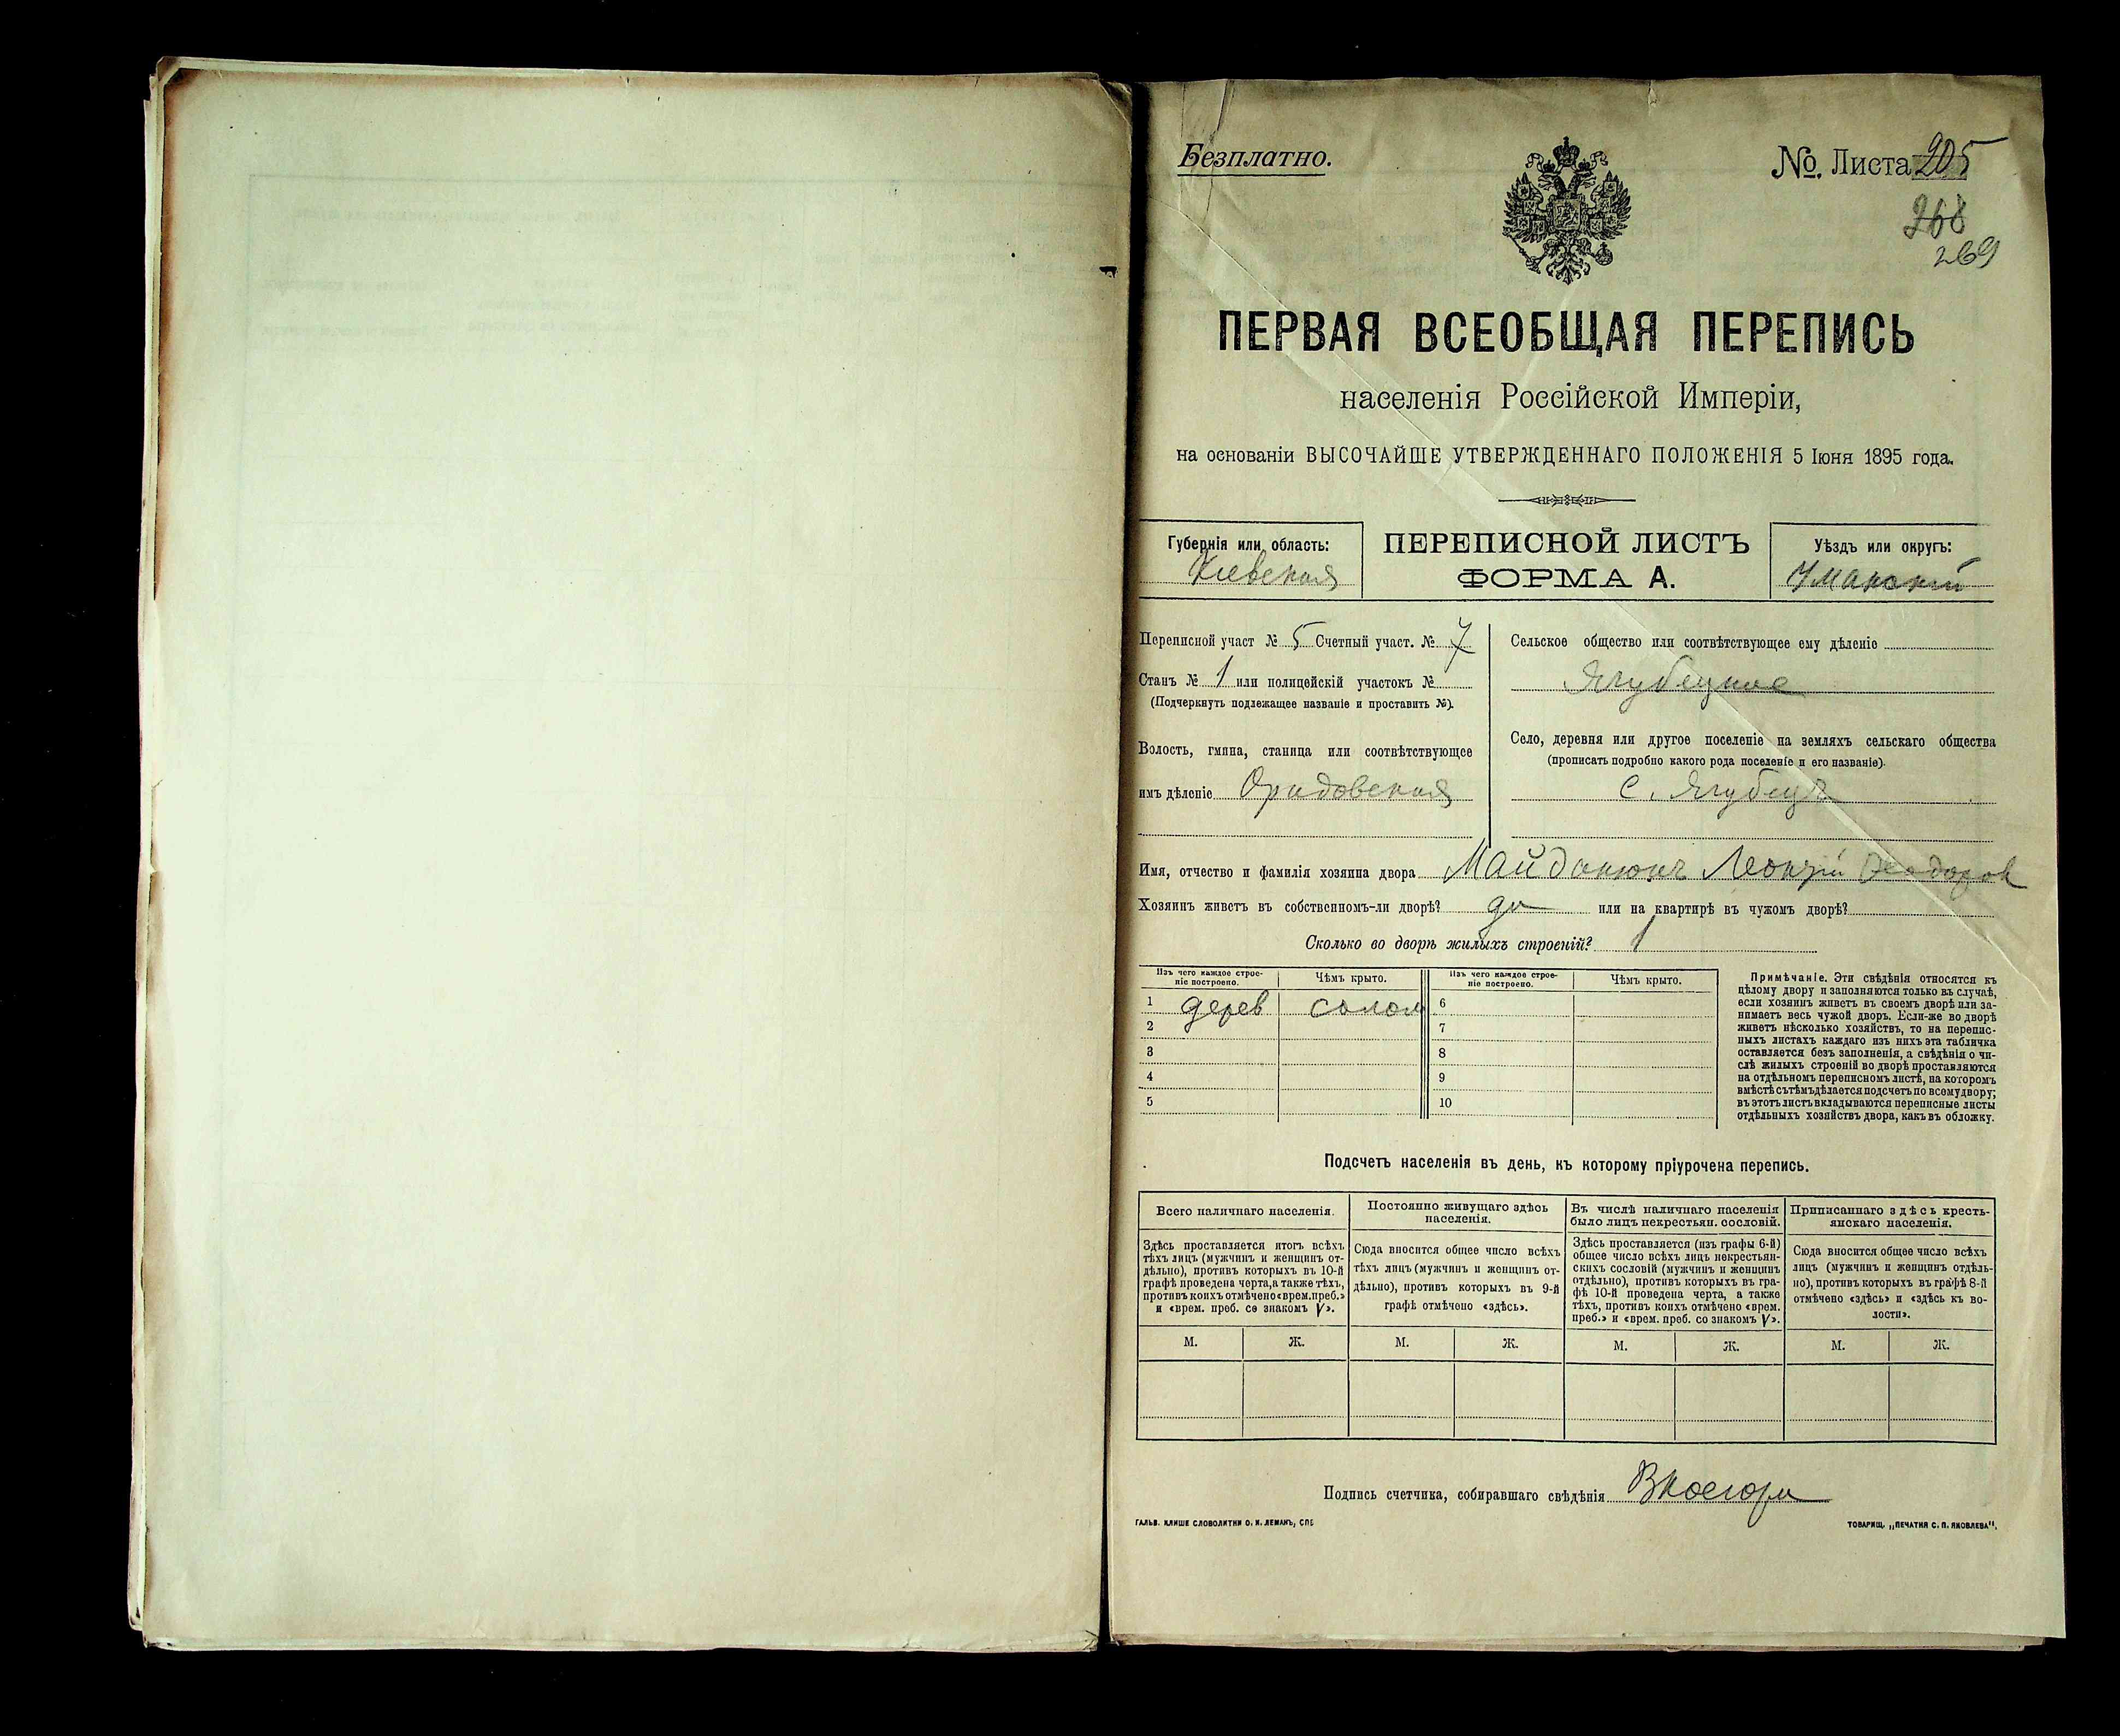 Безплатно.
№. Листа 205
268
269
ПЕРВАЯ ВСЕОБЩАЯ ПЕРЕПИСЬ
населенія Россійской Имперіи,
на основаніи ВЫСОЧАЙШЕ УТВЕРЖДЕННАГО ПОЛОЖЕНІЯ 5 Іюня 1895 года.
Губернія или область:
Кіевская
ПЕРЕПИСНОЙ ЛИСТЪ
ФОРМА А.
Уѣздъ или округъ:
Уманскій
Переписной участ № 5 Счетный участ. № 7
Станъ № 1 или полицейскій участокъ №
(Подчеркнуть подлежащее названіе и проставить №).
Волость, гмина, станица или соотвѣтствующее
имъ дѣленіе Орадовская
Сельское общество или соотвѣтствующее ему дѣленіе
Ягубецкое
Село, деревня или другое поселеніе на земляхъ сельскаго общества
(прописать подробно какого рода поселеніе и его названіе).
с. Ягубецъ
Имя, отчество и фамилія хозяина двора Майданюкъ Леонтій Феодоров
Хозяинъ живетъ въ собственномъ-ли дворѣ? да или на квартирѣ въ чужомъ дворѣ?
Сколько во дворѣ жилыхъ строеній? 1
Изъ чего каждое строе-
ніе построено.
Чѣмъ крыто.
1 дерев солом
2
3
4
5
Изъ чего каждое строе-
ніе построено.
Чѣмъ крыто.
6
7
8
9
10
Примѣчаніе. Эти свѣдѣнія относятся къ
цѣлому двору и заполняются только въ случаѣ,
если хозяинъ живетъ въ своемъ дворѣ или за-
нимаетъ весь чужой дворъ. Если-же во дворѣ
живетъ нѣсколько хозяйствъ, то на перепис-
ныхъ листахъ каждаго изъ нихъ эта табличка
оставляется безъ заполненія, а свѣдѣнія о чи-
слѣ жилыхъ строеній во дворѣ проставляются
на отдѣльномъ переписномъ листѣ, на которомъ
вмѣстѣ съ тѣмъ дѣлается подсчетъ по всему двору;
въ этотъ листъ вкладываются переписные листы
отдѣльныхъ хозяйствъ двора, какъ въ обложку.
Подсчетъ населенія въ день, къ которому пріурочена перепись.
Всего наличнаго населенія.
Здѣсь проставляется итогъ всѣхъ
тѣхъ лицъ (мужчинъ и женщинъ от-
дѣльно), противъ которыхъ въ 10-й
графѣ проведена черта, а также тѣхъ,
противъ коихъ отмѣчено «врем. преб.»
и «врем. преб. со знакомъ V».
М. Ж.
Постоянно живущаго здѣсь
населенія.
Сюда вносится общее число всѣхъ
тѣхъ лицъ (мужчинъ и женщинъ от-
дѣльно), противъ которыхъ въ 9-й
графѣ отмѣчено «здѣсь».
М. Ж.
Въ числѣ наличнаго населенія
было лицъ некрестьян. сословій.
Здѣсь проставляется (изъ графы 6-й)
общее число всѣхъ лицъ некрестьян-
скихъ сословій (мужчинъ и женщинъ
отдѣльно), противъ которыхъ въ гра-
фѣ 10-й проведена черта, а также
тѣхъ, противъ коихъ отмѣчено «врем.
преб.» и «врем. преб. со знакомъ V».
М. Ж.
Приписаннаго здѣсь кресть-
янскаго населенія.
Сюда вносится общее число всѣхъ
лицъ (мужчинъ и женщинъ отдѣль-
но), противъ которыхъ въ графѣ 8-й
отмѣчено «здѣсь» и «здѣсь къ во-
лости».
М. Ж.
Подпись счетчика, собиравшаго свѣдѣнія
ГАЛЬВ. КЛИШЕ СЛОВОЛИТНИ О. И. ЛЕМАНЪ, СПБ
ТОВАРИЩ. „ПЕЧАТНЯ С. П. ЯКОВЛЕВА".